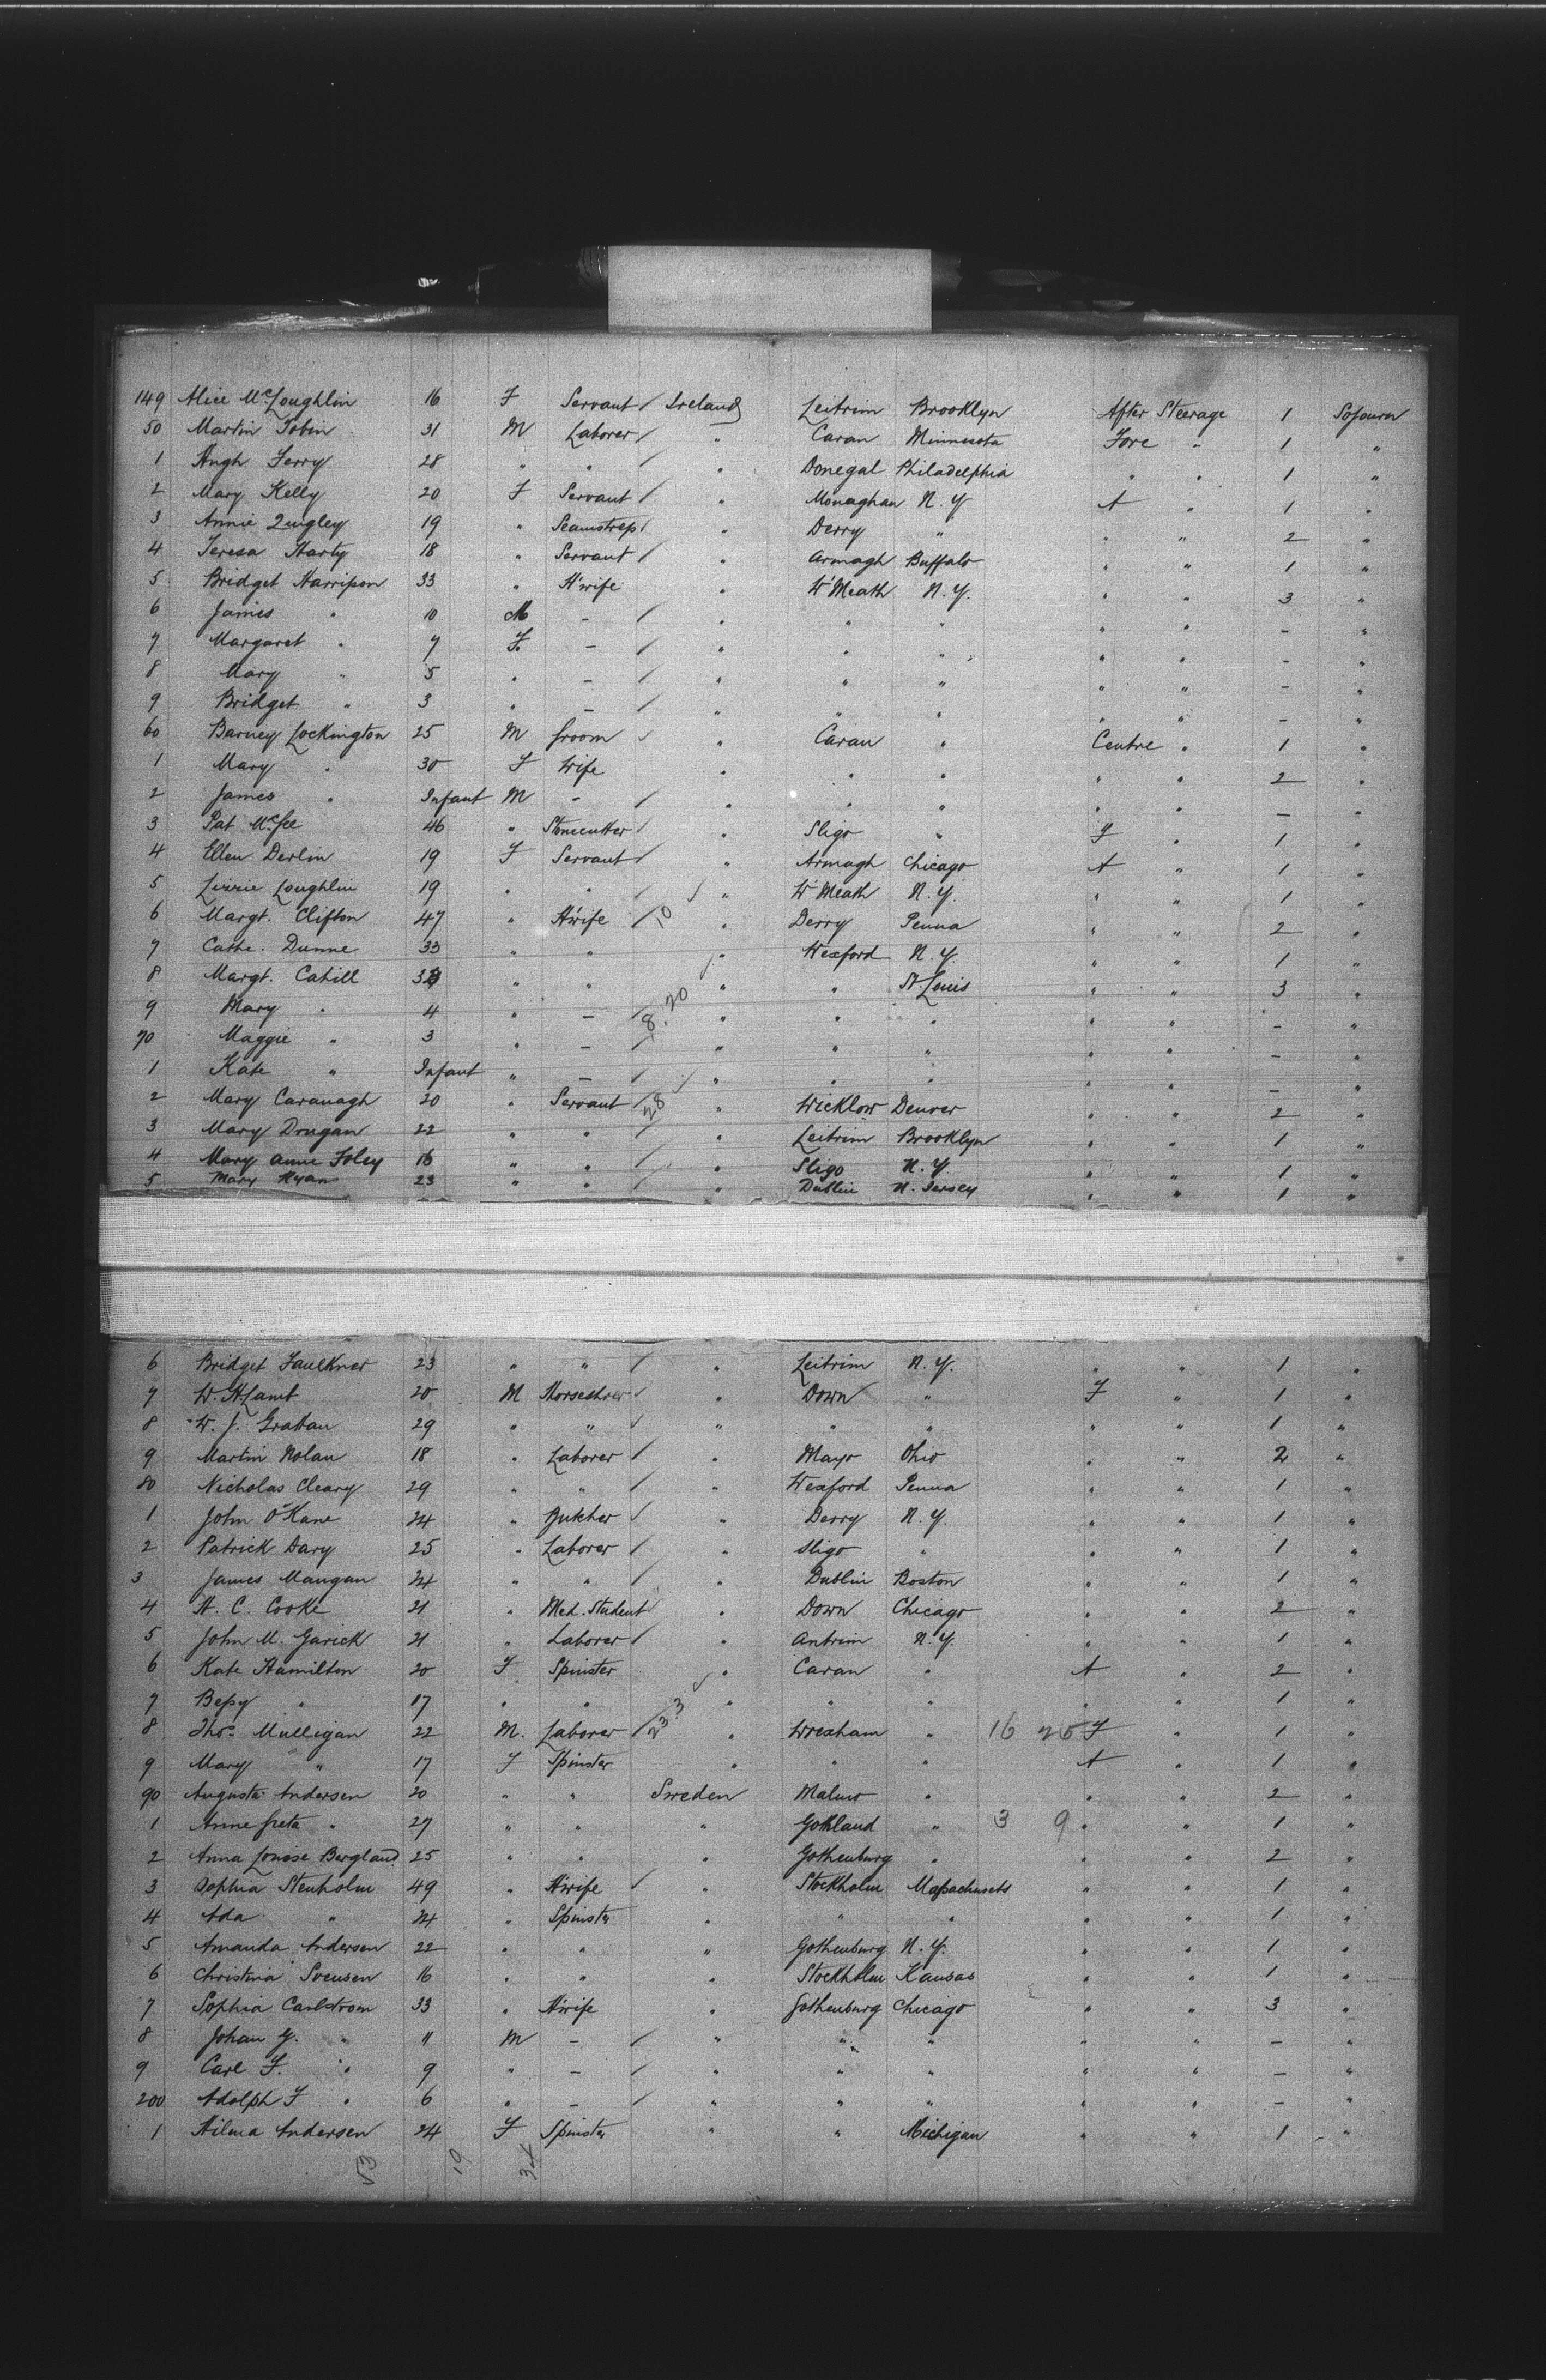 149 Alice McLoughlin 16 F Servant / Ireland Leitrim Brooklyn After Steerage 1 Sojourn
50 Martin Tobin 31 M Laborer / " Cavan Minnesota Fore " 1 "
1 Hugh Ferry 28 " " / " Donegal Philadelphia " " 1 "
2 Mary Kelly 20 F Servant / " Monaghan N.Y. A " 1 "
3 Annie Quigley 19 " Seamstress / " Derry " " " 2 "
4 Teresa Harty 18 " Servant / " Armagh Buffalo " " 1 "
5 Bridget Harrison 33 " H'wife " W'Meath N.Y. " " 3 "
6 James " 10 M - / " " " " " - "
7 Margaret " 7 F. - / " " " " " - "
8 Mary " 5 " - / " " " " " - "
9 Bridget " 3 " - / " " " " " - "
60 Barney Lockington 25 M Groom / " Cavan " Centre " 1 "
1 Mary " 30 F Wife " " " " " 2 "
2 James " Infant M - / " " " " " - "
3 Pat McGee 46 " Stonecutter / " Sligo " F " 1 "
4 Ellen Devlin 19 F Servant / " Armagh Chicago A " 1 "
5 Lizzie Loughlin 19 " " / " W'Meath N.Y. " " 1 "
6 Margt. Clifton 47 " H'wife / 10 " Derry Penna " " 2 "
7 Cathe. Dunne 33 " " " Wexford N.Y. " " 1 "
8 Margt. Cahill " " " " St. Louis " " 3 "
9 Mary " 4 " - / 8. 20 " " " " " - "
70 Maggie " 3 " - / " " " " " - "
1 Kate " Infant " - / " " " " " - "
2 Mary Cavanagh 20 " Servant / 28 " Wicklow Denver " " 2 "
3 Mary Drugan 22 " " / " Leitrim Brooklyn " " 1 "
4 Mary Anne Foley 16 " " / " Sligo N.Y. " " 1 "
5 Mary Ryan 23 " " / " Dublin N. Jersey " " 1 "
6 Bridget Faulkner 23 " " / " Leitrim N.Y. " " 1 "
7 W. H. Lamb 20 M Horseshoer / " Down " F " 1 "
8 W. J. Grattan 29 " " / " " " " " 1 "
9 Martin Nolan 18 " Laborer / " Mayo Ohio " " 2 "
80 Nicholas Cleary 29 " " / " Wexford Penna " " 1 "
1 John O'Kane 24 " Butcher / " Derry N.Y. " " 1 "
2 Patrick Davy 25 " Laborer / " Sligo " " " 1 "
3 James Mangan 24 " " / " Dublin Boston " " 1 "
4 H. C. Cooke 21 " Med. Student / " Down Chicago " " 2 "
5 John M. Garick 21 " Laborer / " Antrim N.Y. " " 1 "
6 Kate Hamilton 20 F Spinster " Cavan " A " 2 "
7 Bessy " 17 " " " " " " " 1 "
8 Thos. Mulligan 22 M. Laborer / 23 3 " Wrexham " 16 26 F " 1 "
9 Mary " 17 F Spinster " " " A " 1 "
90 Augusta Andersen 20 " " Sweden Malmo " " " 2 "
1 Anne Greta " 27 " " " Gothland " 3 9 " " 1 "
2 Anna Louise Bergland 25 " " " Gothenburg " " " 2 "
3 Sophia Stenholm 49 " H'wife / " Stockholm Massachusets " " 1 "
4 Ada " 24 " Spinster " " " " " 1 "
5 Amanda Andersen 22 " " " Gothenburg N.Y. " " 1 "
6 Christina Svensen 16 " " " Stockholm Kansas " " 1 "
7 Sophia Carlstrom 33 " H'wife " Gothenburg Chicago " " 3 "
8 Johan G. " 11 M - / " " " " " - "
9 Carl F. " 9 " - / " " " " " - "
200 Adolph F " 6 " - / " " " " " - "
1 Hilma Andersen 24 F Spinster " " Michigan " " 1 "
53 19 34